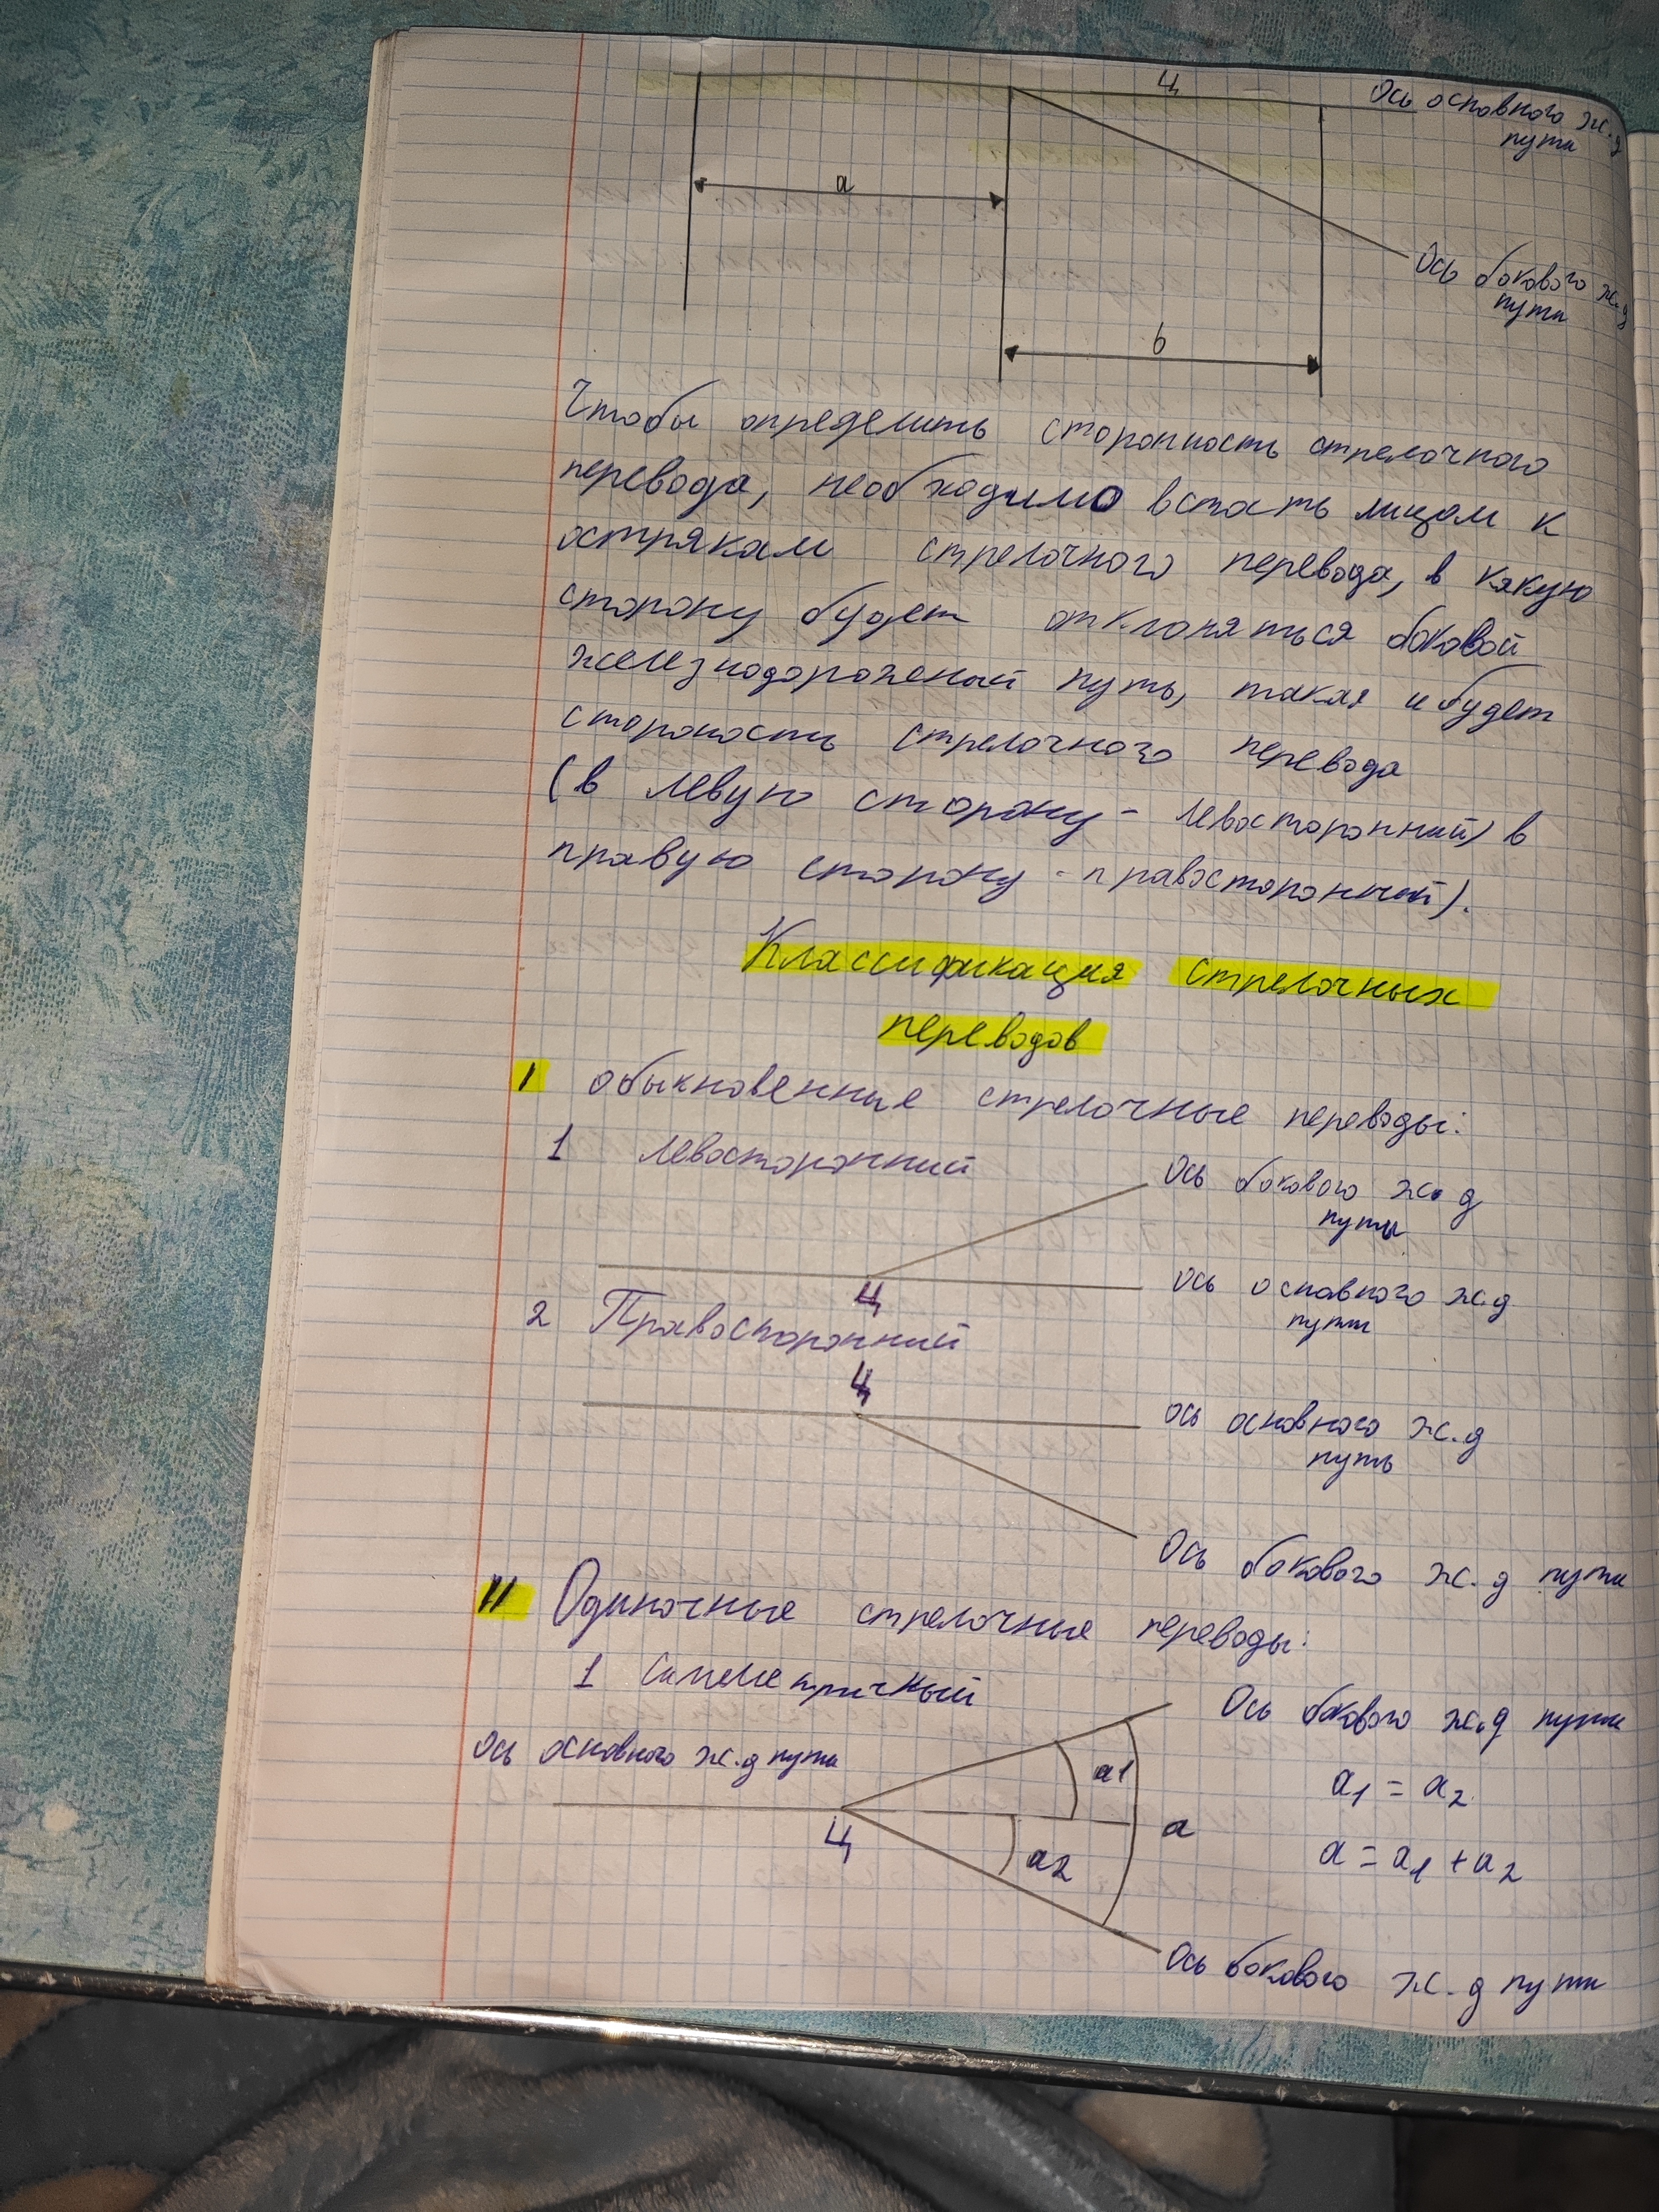 ц
Ось основного ж.д
пути
a
Ось бокового ж.д
пути
b
Чтобы определить стороность стрелочного
перевода, необходимо встать лицом к
острякам стрелочного перевода, в какую
сторону будет отклоняться боковой
железнодорожный путь, такая и будет
стороность стрелочного перевода
(в левую сторону - левосторонний) в
правую сторону - правосторонний).
Классификация стрелочных
переводов
I обыкновенные стрелочные переводы:
1 левосторонний
Ось бокового ж.д
пути
Ц
Ось основного ж.д
пути
2 Правосторонний
Ц
ось основного ж.д
путь
Ось бокового ж.д пути
II Одиночные стрелочные переводы:
1 Симметричный
Ось бокового ж.д пути
Ось основного ж.д пути
a1
a1 = a2
Ц
a
a2
a = a1 + a2
Ось бокового ж.д пути